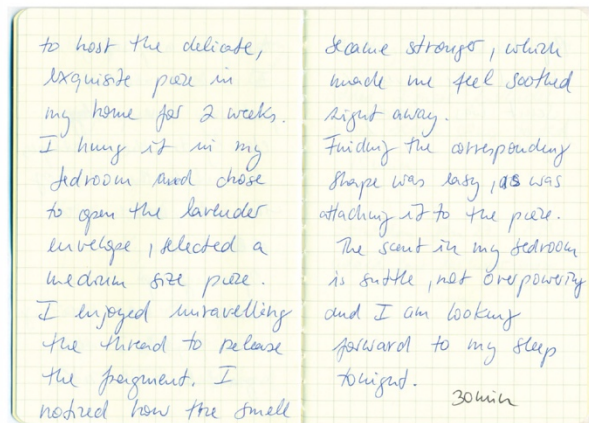 to host the delicate,
exquisite piece in
my home for 2 weeks.
I hung it in my
bedroom and chose
to open the lavender
envelope, selected a
medium size piece.
I enjoyed unravelling
the thread to release
the fragment. I
noticed how the smell
became stronger, which
made me feel soothed
right away.
Finding the corresponding
shape was easy, as was
attaching it to the piece.
The scent in my bedroom
is subtle, not overpowering
and I am looking
forward to my sleep
tonight.
30min